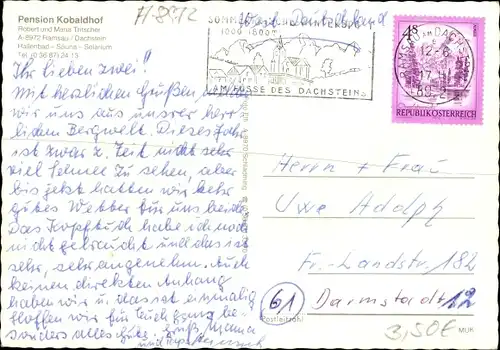 Pension Kobaldhof
Robert und Maria Tritscher
A-8972 Ramsau / Dachstein
Hallenbad - Sauna - Solarium
Tel. (0 36 87) 24 15
A-8972
West Deutschland
1000-1800 M
AM FUSSE DES DACHSTEINS
4 S
AM DACHST
12-6
17
89-2
REPUBLIK ÖSTERREICH
Ihr lieben zwei!
Mit herzlichen Grüßen
wir uns aus unserer herr
lichen Bergwelt. Dieses Jahr
ist zwar z. Zeit nicht sehr
viel Schnee zu sehen, aber
bis jetzt hatten wir sehr
gutes Wetter für uns beide
Das Kopftuch habe ich noch
nicht gebraucht und das ist
sehr, sehr angenehm. Auch
keinen direkten Anhang
haben wir u. das ist einmalig
Hoffen wir für Euch ganz be-
sonders alles Gute. Gruß Mama
und
Herrn + Frau
Uwe Adolph
Fr.-Landstr. 182
61 Darmstadt 12
Postleitzahl
3,50€
MUK